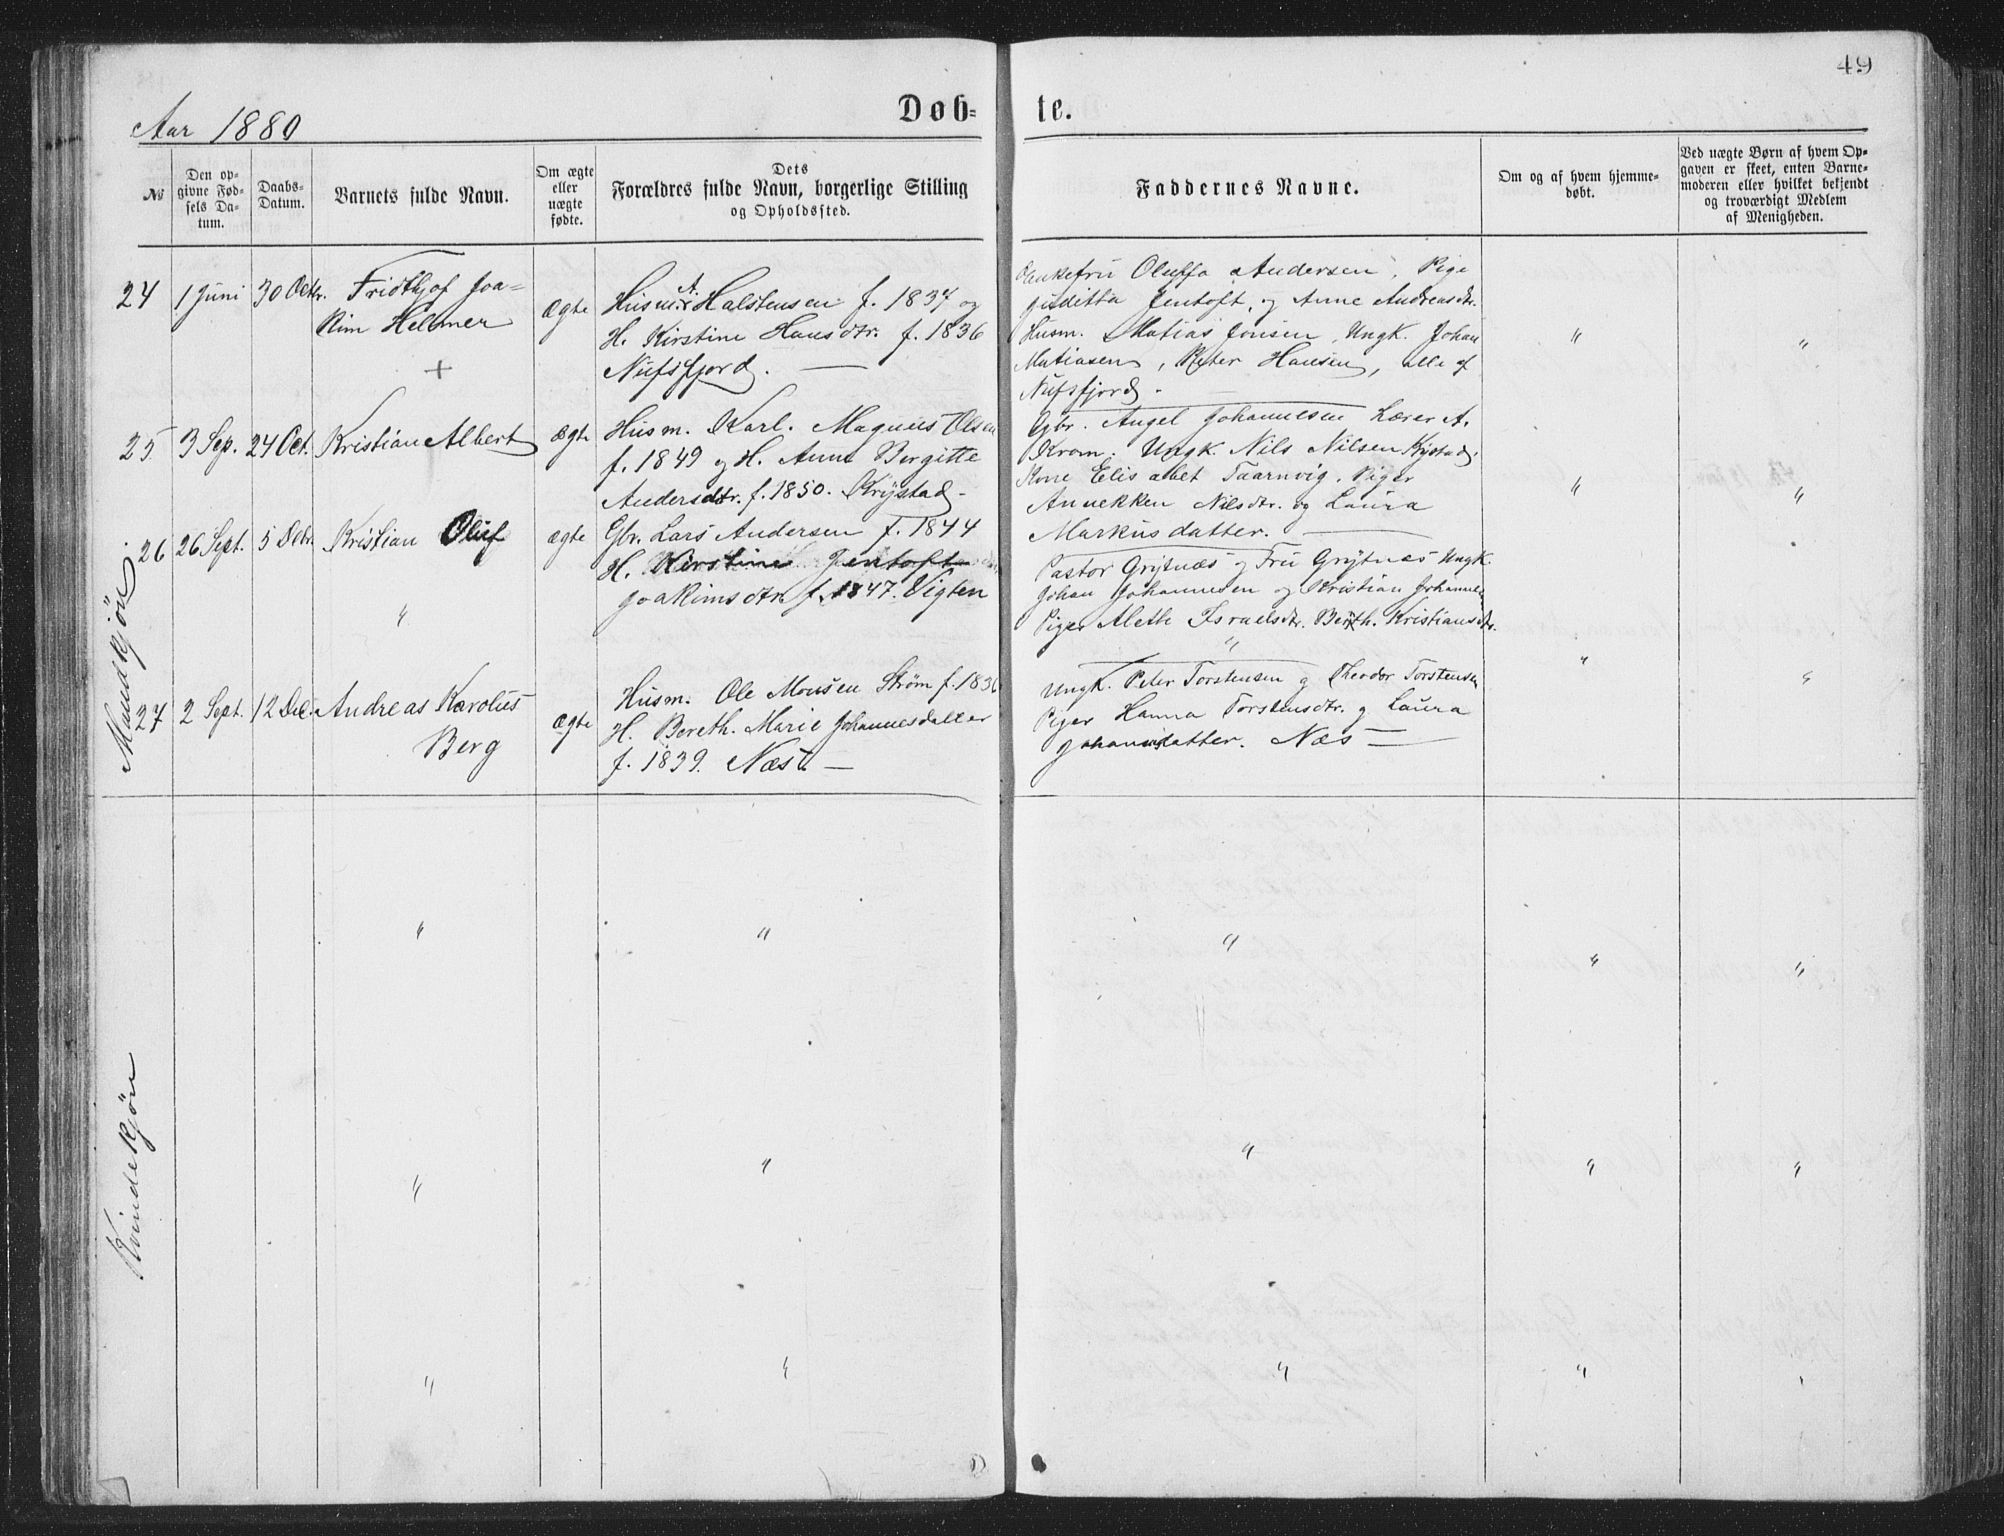 49
Aar 1880
Døb-
te.
№
Den op-
givne Fød-
sels Da-
tum.
Daabs-
Datum.
Barnets fulde Navn.
Om ægte
eller
uægte
fødte.
Dets
Forældres fulde Navn, borgerlige Stilling
og Opholdssted.
Faddernes Navne.
Om og af hvem hjemme-
døbt.
Ved uægte Børn af hvem Op-
gaven er skeet, enten Barne-
moderen eller hvilket bekjendt
og troværdigt Medlem
af Menigheden.
Mandkjøn
24 1 Juni 30 Octbr. Fridthjof Joa-
kim Helmer
+
ægte
Husm. Halstensen f. 1834 og
H. Kirstine Hansdtr. f. 1836
Nufsfjord. —
Enkefru Oluffa Andersen, Pige
Juditta Jentoft, og Anne Andreasdtr.
Husm. Matias Jonsen, Ungk. Johan
Matiasen, Peter Hansen, alle af
Nufsfjord -
" "
25 3 Sep. 24 Oct. Kristian Albert ægte
Husm. Karl. Magnus Olsen
f. 1849 og H. Anne Bergitte
Andersdtr. f. 1850. Krystad -
Gbr. Angel Johannesen Lærer A.
Krom, Ungk. Nils Nilsen Krystad,
Kone Elisabet Taarnvig, Piger
Annekken Nilsdtr. og Laura
Markusdatter. —
" "
26 26 Sept. 5 Dcbr. Kristian Oluf ægte
"
Gbr. Lars Andersen f. 1844
H. Kirstine Jentoft
Joakimsdtr. f. 1847. Vigten
Pastor Grytnæs og Fru Grytnæs Ungk.
Johan Johannesen og Kristian Johannes
Piger Aleth Israelsdtr. Berth. Kristiansdtr.
"
" "
27 2 Sept. 12 Dec. Andreas Karolus
Berg
ægte
Husm. Ole Monsen Strøm f. 1836
H. Bereth. Marie Johannesdatter
f. 1839. Næst. —
Ungk. Peter Torstensen og Theodor Torstensen
Piger Hanna Torstensdtr. og Laura
Johansdatter. Næs —
Kvindekjøn
" " " " "
" " " " "
" " " "